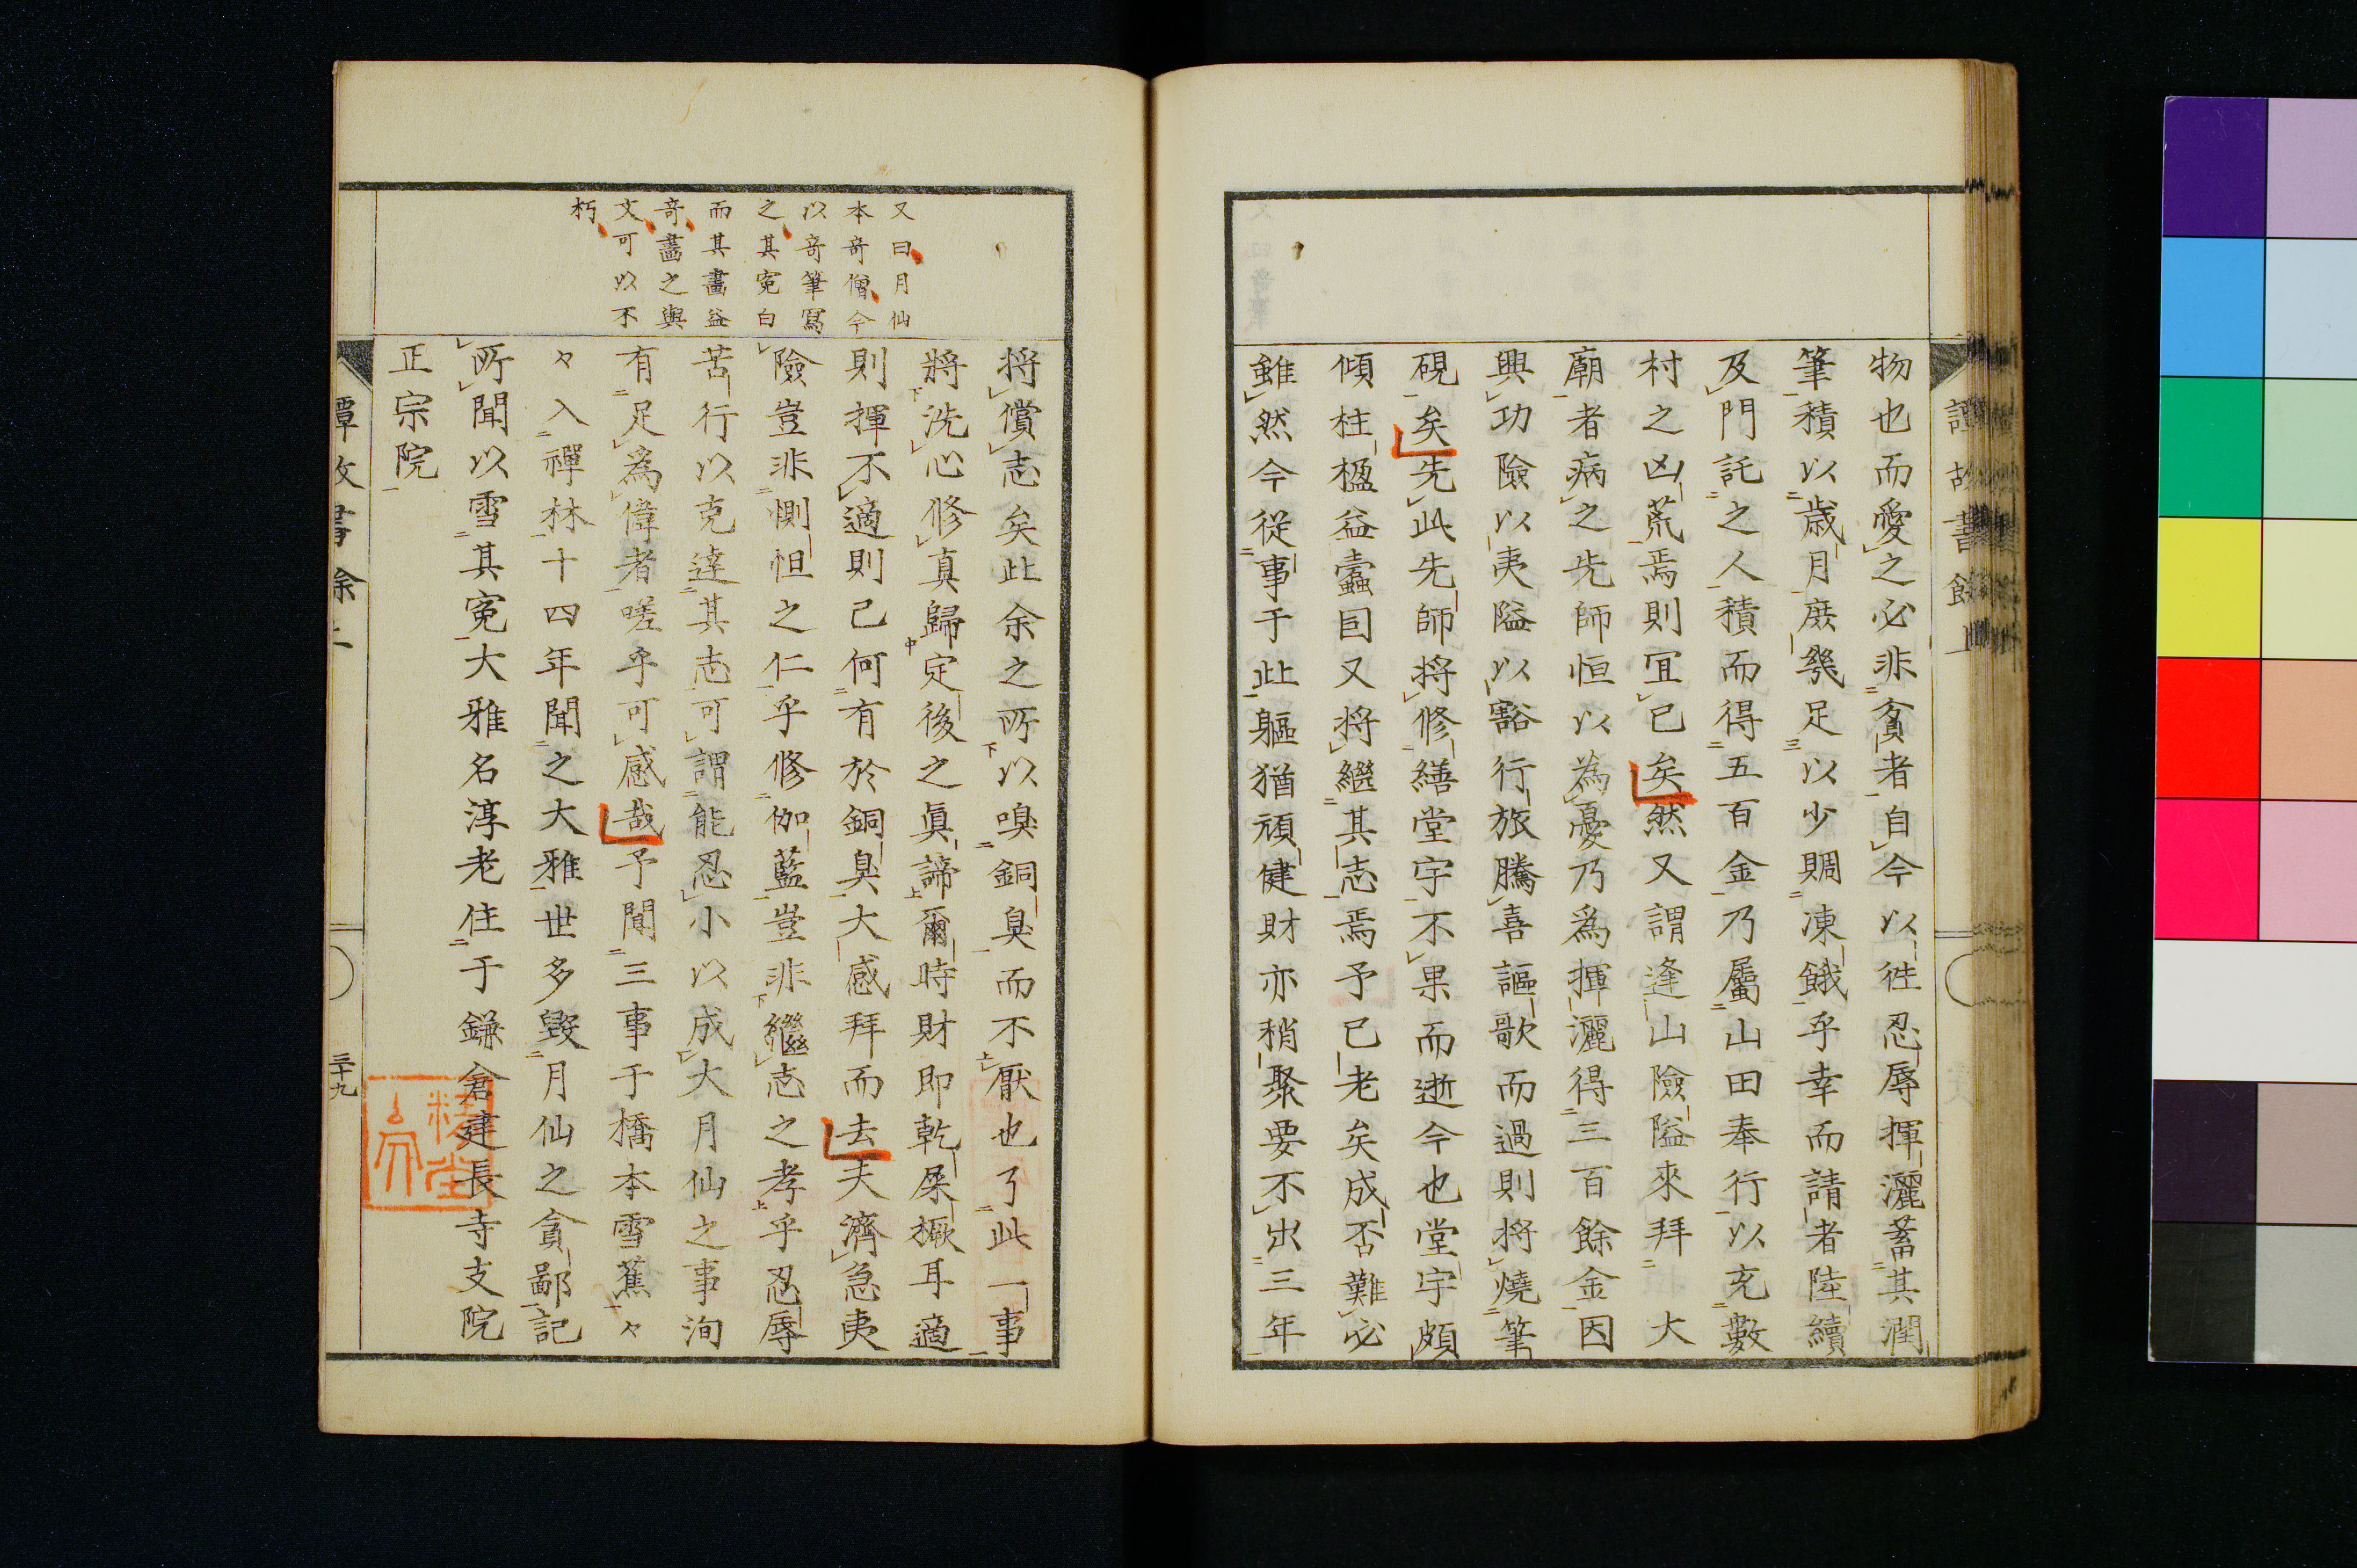 譚故書餘上
物也而愛之必非貪者自今以徃忍辱揮灑蓄其潤
筆積以歳月庻幾足以少賙凍餓乎幸而請者陸續
及門託之人積而得五百金乃屬山田奉行以充數
村之凶荒焉則冝已矣然又謂逢山險隘來拜 大
廟者病之先師恒以為憂乃爲揮灑得三百餘金因
興功險以夷隘以豁行旅騰喜謳歌而過則将燒筆
硯矣先此先師将修繕堂宇不果而逝今也堂宇頗
傾柱楹益蠧囙又将繼其志焉予已老矣成否難必
雖然今從事于此軀猶頑健財亦稍聚要不出三年
将償志矣此余之所以嗅銅臭而不厭也了此一事
將洗心修真歸定後之眞諦爾時財即乾屎橛耳適
則揮不適則已何有於銅臭大感拜而去夫濟急夷
險豈非惻怛之仁乎修伽藍豈非繼志之孝乎忍辱
苦行以克達其志可謂能忍小以成大月仙之事洵
有足爲偉者嗟乎可感哉予聞三事于橋本雪蕉々
々入禪林十四年聞之大雅世多毀月仙之貪鄙記
所聞以雪其寃大雅名淳老住于鎌倉建長寺支院
正宗院
又曰月仙
本奇僧今
以奇筆寫
之其寃白
而其畫益
奇畫之與
文可以不
朽
三十九